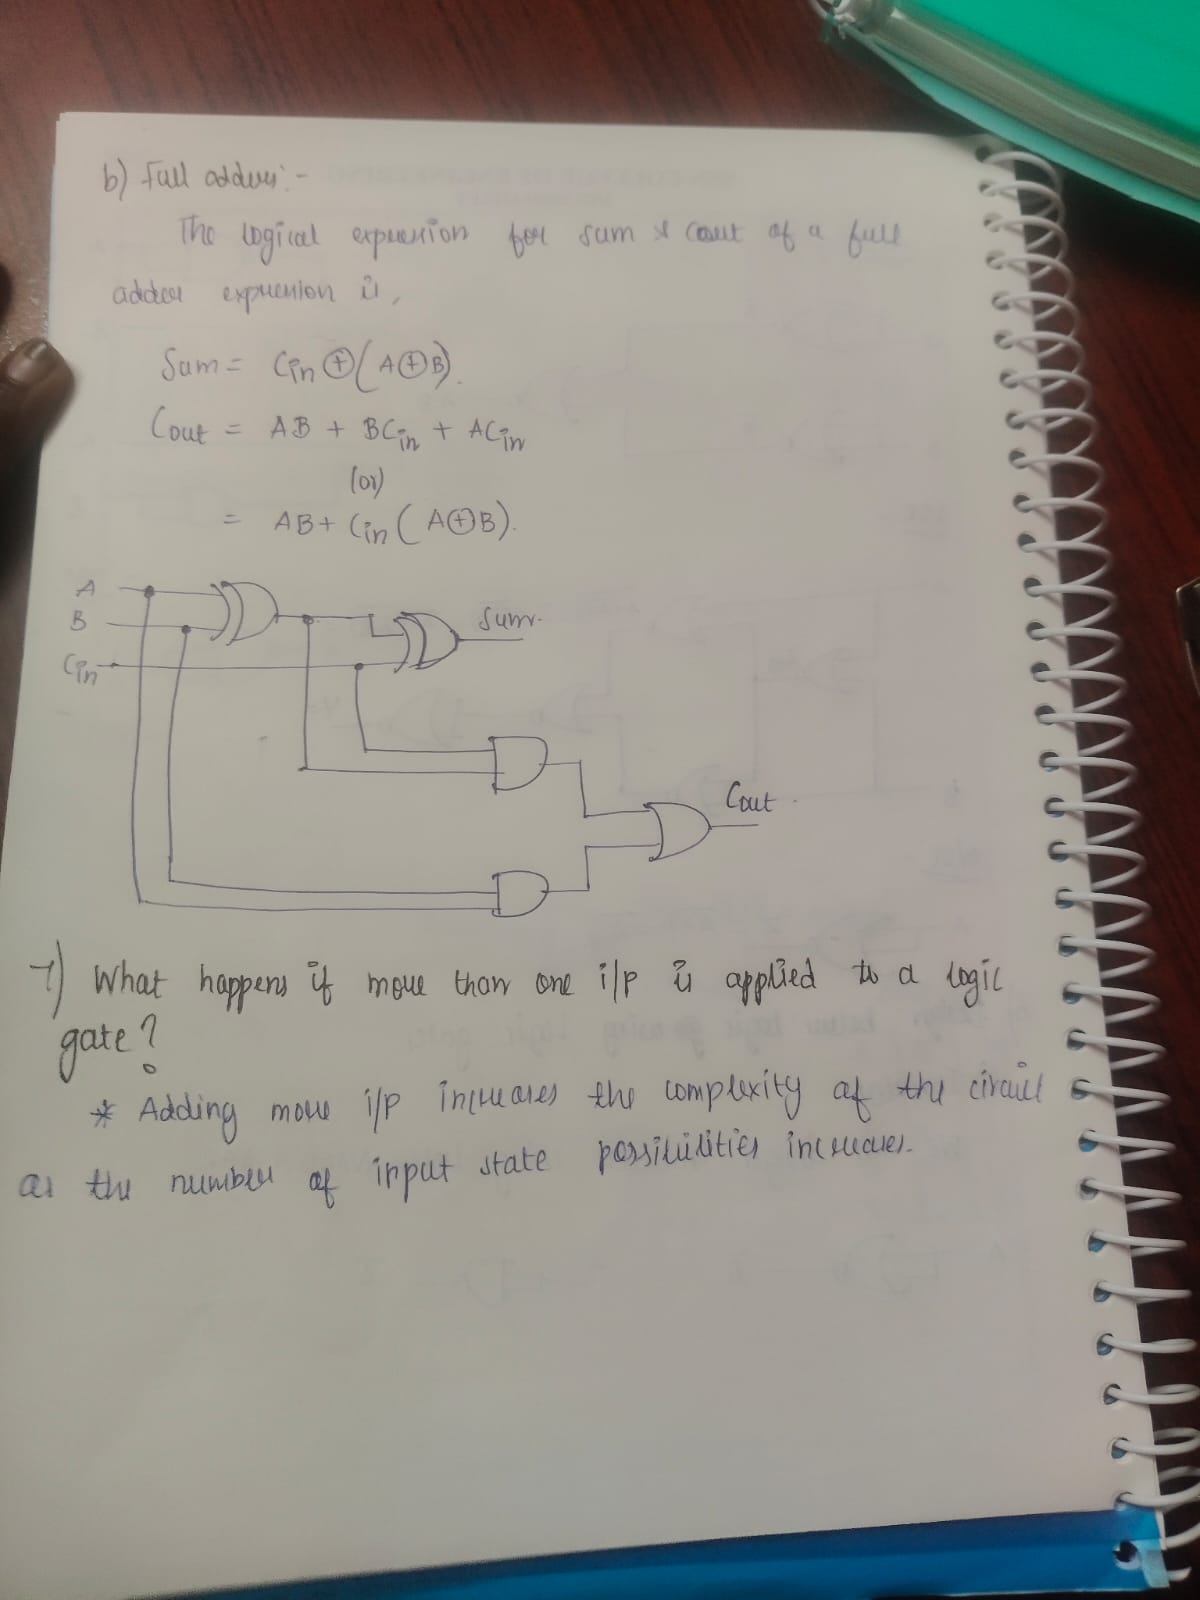 b) Full adder:-
The logical expression for sum & Cout of a full
adder expression is,
Sum = Cin ⊕ (A⊕B).
Cout = AB + BCin + ACin
(or)
= AB + Cin (A⊕B).
A
B
Cin
Sum.
Cout.
7) What happens if more than one i/p is applied to a logic
gate?
* Adding more i/p increases the complexity of the circuit
as the number of input state possibilities increases.